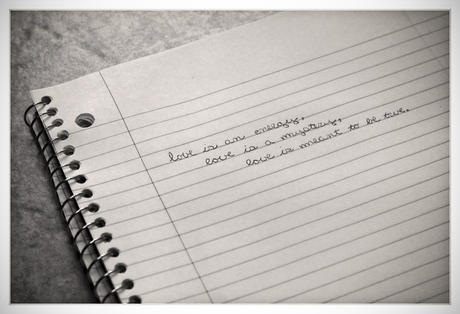 love is an energy,
love is a mystery,
love is meant to be true.